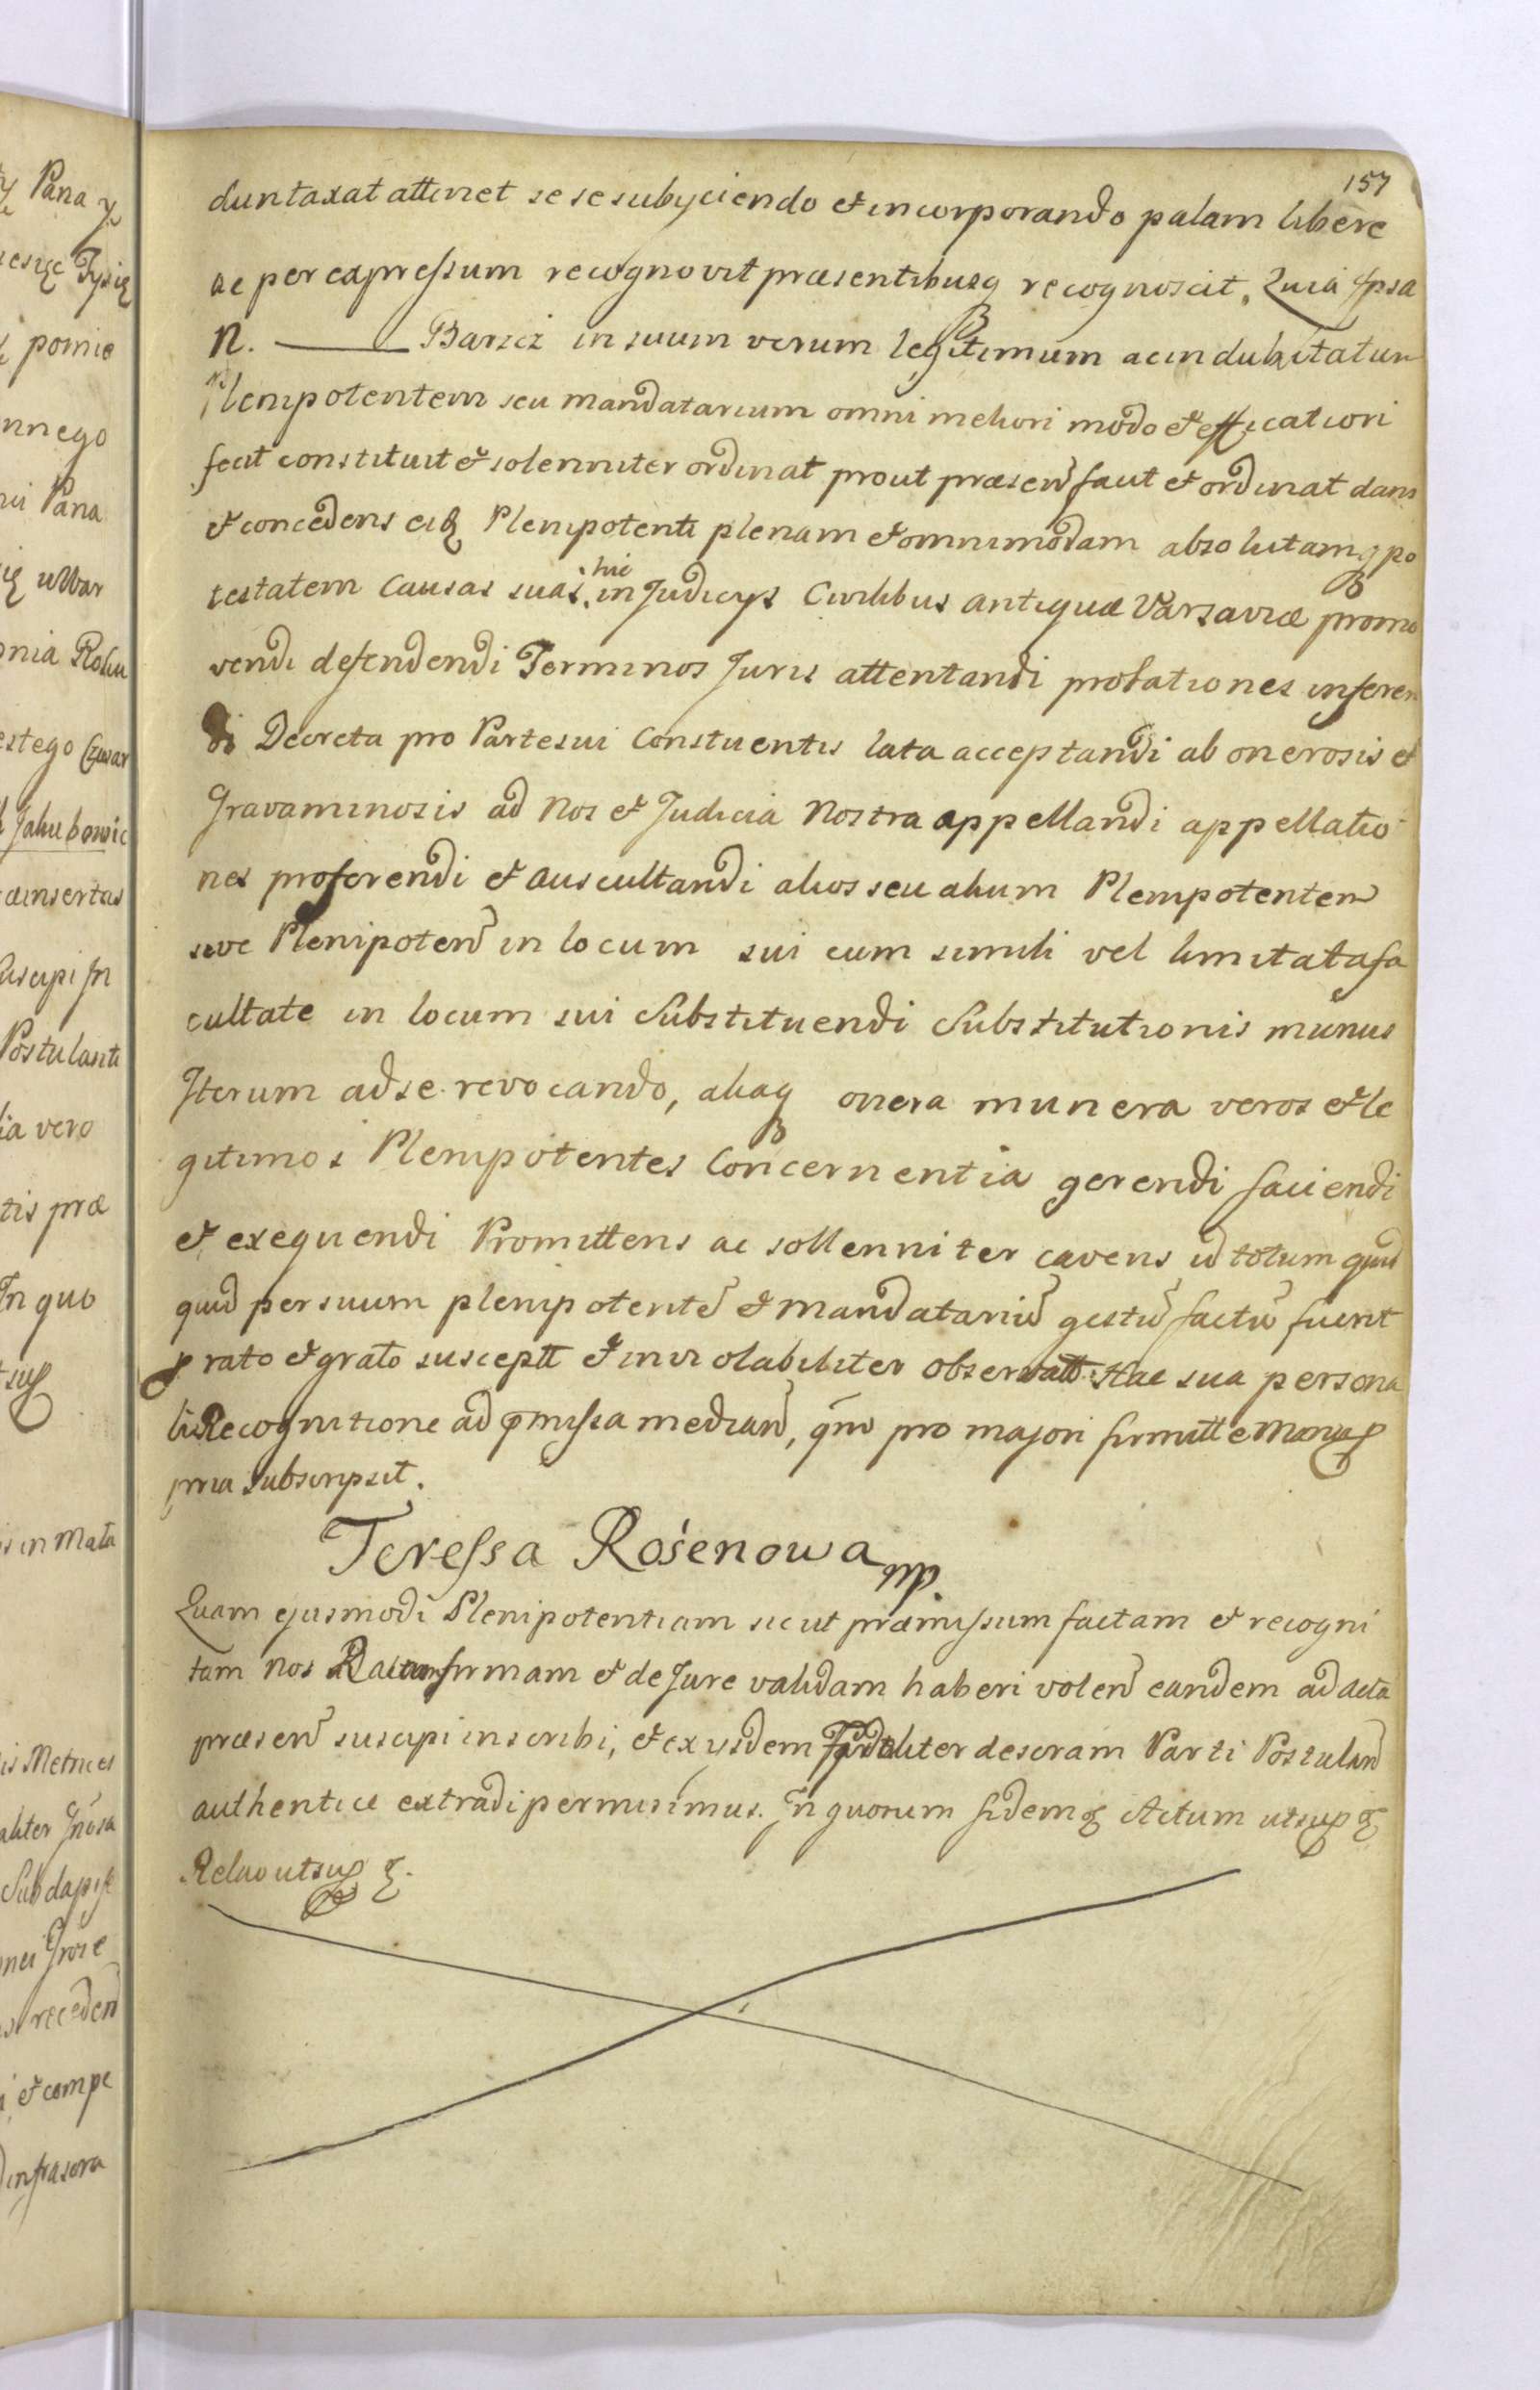 157
duntaxat attinet se se subyciendo et incorporando palam libere
ac per expressum recognovit præsentibusq recognoscit. Quia Ipsa
N. ——— Barszcz in suum verum legitimum ac indubitatum
Plenipotentem seu mandatarium omni meliori modo et efficatiori
fecit constituit et solenniter ordinat prout præsen facit et ordinat dans
et concedens eidē Plenipotenti plenam et omnimodam absolutamq po
testatem causas suas hic in Judicys Civilibus Antiquæ Varsaviæ promo
vendi defendendi Terminos Juris attentandi probationes inferen
di Decreta pro Parte sui Constuentis lata acceptandi ab onerosis et
Gravaminosis ad Nos et Judicia Nostra appellandi appellatio
nes proferendi et auscultandi alios seu alium Plenipotentem
sive Plenipoten in locum sui cum simili vel limitata fa
cultate in locum sui Substituendi Substitutionis munus
Iterum ad se revocando, aliaq onera munera veros et le
gitimos Plenipotentes Concernentia gerendi faciendi
et exequendi Promittens ac sollenniter cavens id totum quid
quid per suum plenipotentē et mandatariū gestū factū fuerit
rato et grato susceptt et inviolabiliter observatt. Hac sua persona
li Recognitione ad pmissa median, qm pro majori firmitte Manu
pria subscripsit.
Teressa Rośenowa mp.
Quam ejusmodi Plenipotentiam sicut præmissum factam et recogni
tam Nos Ratam firmam et de Jure validam haberi volen eandem ad acta
præsen suscipi inscribi, et ex ysdem descram Parti Postulan
authentice extradi permisimus. In quorum fidem Actum utsup
Relao utsup